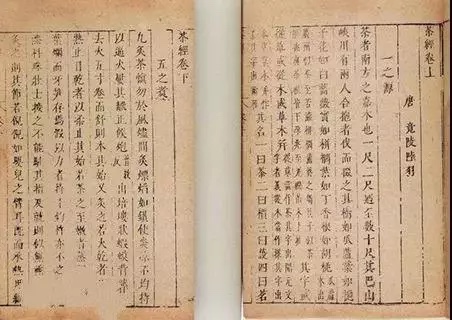 茶經卷上
唐 竟陵陸羽
一之源
茶者南方之嘉木也一尺二尺迺至數十尺其巴山
峽川有兩人合抱者伐而掇之其樹如瓜蘆葉如梔
子花如白薔薇實如栟櫚葉如丁香根如胡桃
其字或
從草或從木或草木并
其名一曰茶二曰檟三曰蔎四曰茗
茶經卷下
五之煮
凡炙茶慎勿於風燼間炙熛焰如鑽使炎涼不均持
以逼火屢其翻正候炮出培塿狀蝦蟆背然後
去火五寸卷而舒則本其始又炙之若火乾者
熟止日乾者以柔止其始若茶之至嫩者
葉爛而牙笋存焉假以力者持千鈞杵亦不之
漆科珠壯士接之不能駐其指及就則似無穰
炙之則其節若倪倪如嬰兒之臂耳既而承熱用紙